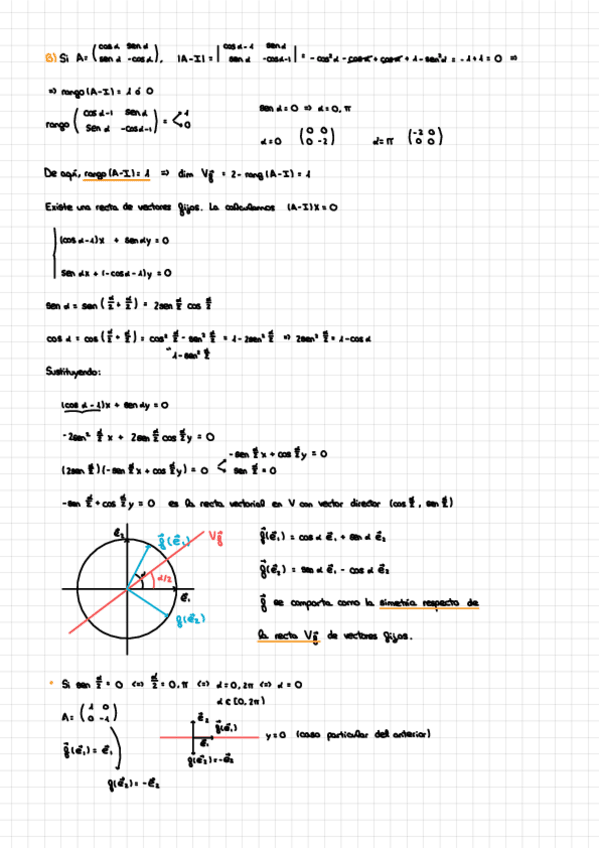 B) Si A = (cos α sen α / sen α -cos α), |A-I| = |cos α-1 sen α / sen α -cos α-1| = -cos²α - cos α + cos α + 1 - sen²α = -1+1 = 0 ⇒
⇒ rango (A-I) = 1 ó 0
rango (cos α-1 sen α / sen α -cos α-1) = < 1 / 0
sen α = 0 ⇒ α = 0, π
α = 0 (0 0 / 0 -2) α = π (-2 0 / 0 0)
De aquí, rango (A-I) = 1 ⇒ dim V_f = 2 - rang (A-I) = 1
Existe una recta de vectores fijos. La calculamos (A-I)X = 0
(cos α-1)x + sen αy = 0
sen αx + (-cos α-1)y = 0
sen α = sen (α/2 + α/2) = 2sen α/2 cos α/2
cos α = cos (α/2 + α/2) = cos² α/2 - sen² α/2 = 1-2sen² α/2 ⇒ 2sen² α/2 = 1-cos α
1-sen² α/2
Sustituyendo:
(cos α-1)x + sen αy = 0
-2sen² α/2 x + 2sen α/2 cos α/2 y = 0
(2sen α/2)(-sen α/2 x + cos α/2 y) = 0 < -sen α/2 x + cos α/2 y = 0 / sen α/2 = 0
-sen α/2 + cos α/2 y = 0 es la recta vectorial en V con vector director (cos α/2, sen α/2)
e₂ f(e₁) V_f
α α/2
e₁
f(e₂)
f(e₁) = cos α e₁ + sen α e₂
f(e₂) = sen α e₁ - cos α e₂
f se comporta como la simetría respecto de
la recta V_f de vectores fijos.
• Si sen α/2 = 0 ⇔ α/2 = 0, π ⇔ α = 0, 2π ⇔ α = 0
α ∈ [0, 2π)
A = (1 0 / 0 -1)
f(e₁) = e₁
f(e₂) = -e₂
e₂
f(e₁)
e₁
f(e₂) = -e₂
y = 0 (caso particular del anterior)